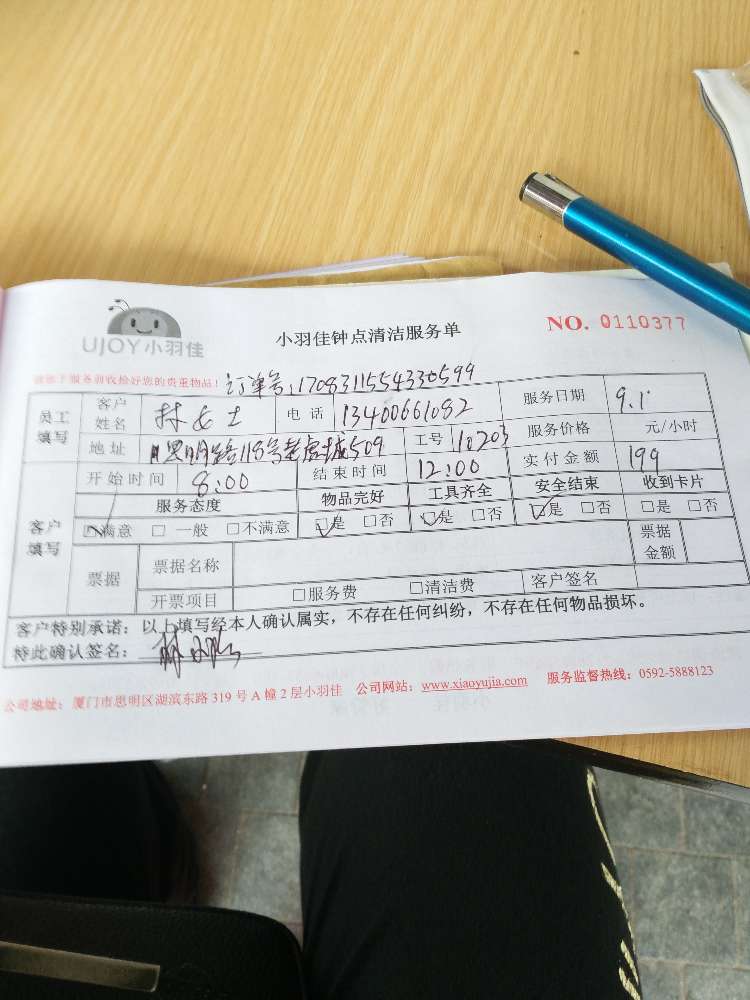 UJOY小羽佳
小羽佳钟点清洁服务单
NO. 0110377
请您于服务前收检好您的贵重物品！ 订单号:1708311554330599
员工填写 客户姓名 林女士 电话 13400661082 服务日期 9.1
地址 思明路118号老虎城509 工号 110203 服务价格 元/小时
开始时间 8:00 结束时间 12:00 实付金额 199
客户填写 服务态度 物品完好 工具齐全 安全结束 收到卡片
☑满意 □ 一般 □不满意 ☑是 □否 ☑是 □否 ☑是 □否 □是 □否
票据 票据名称 票据金额
开票项目 □服务费 □清洁费 客户签名
客户特别承诺：以上填写经本人确认属实，不存在任何纠纷，不存在任何物品损坏。
特此确认签名：
公司地址：厦门市思明区湖滨东路 319 号 A 幢 2 层小羽佳 公司网站：www.xiaoyujia.com 服务监督热线：0592-5888123